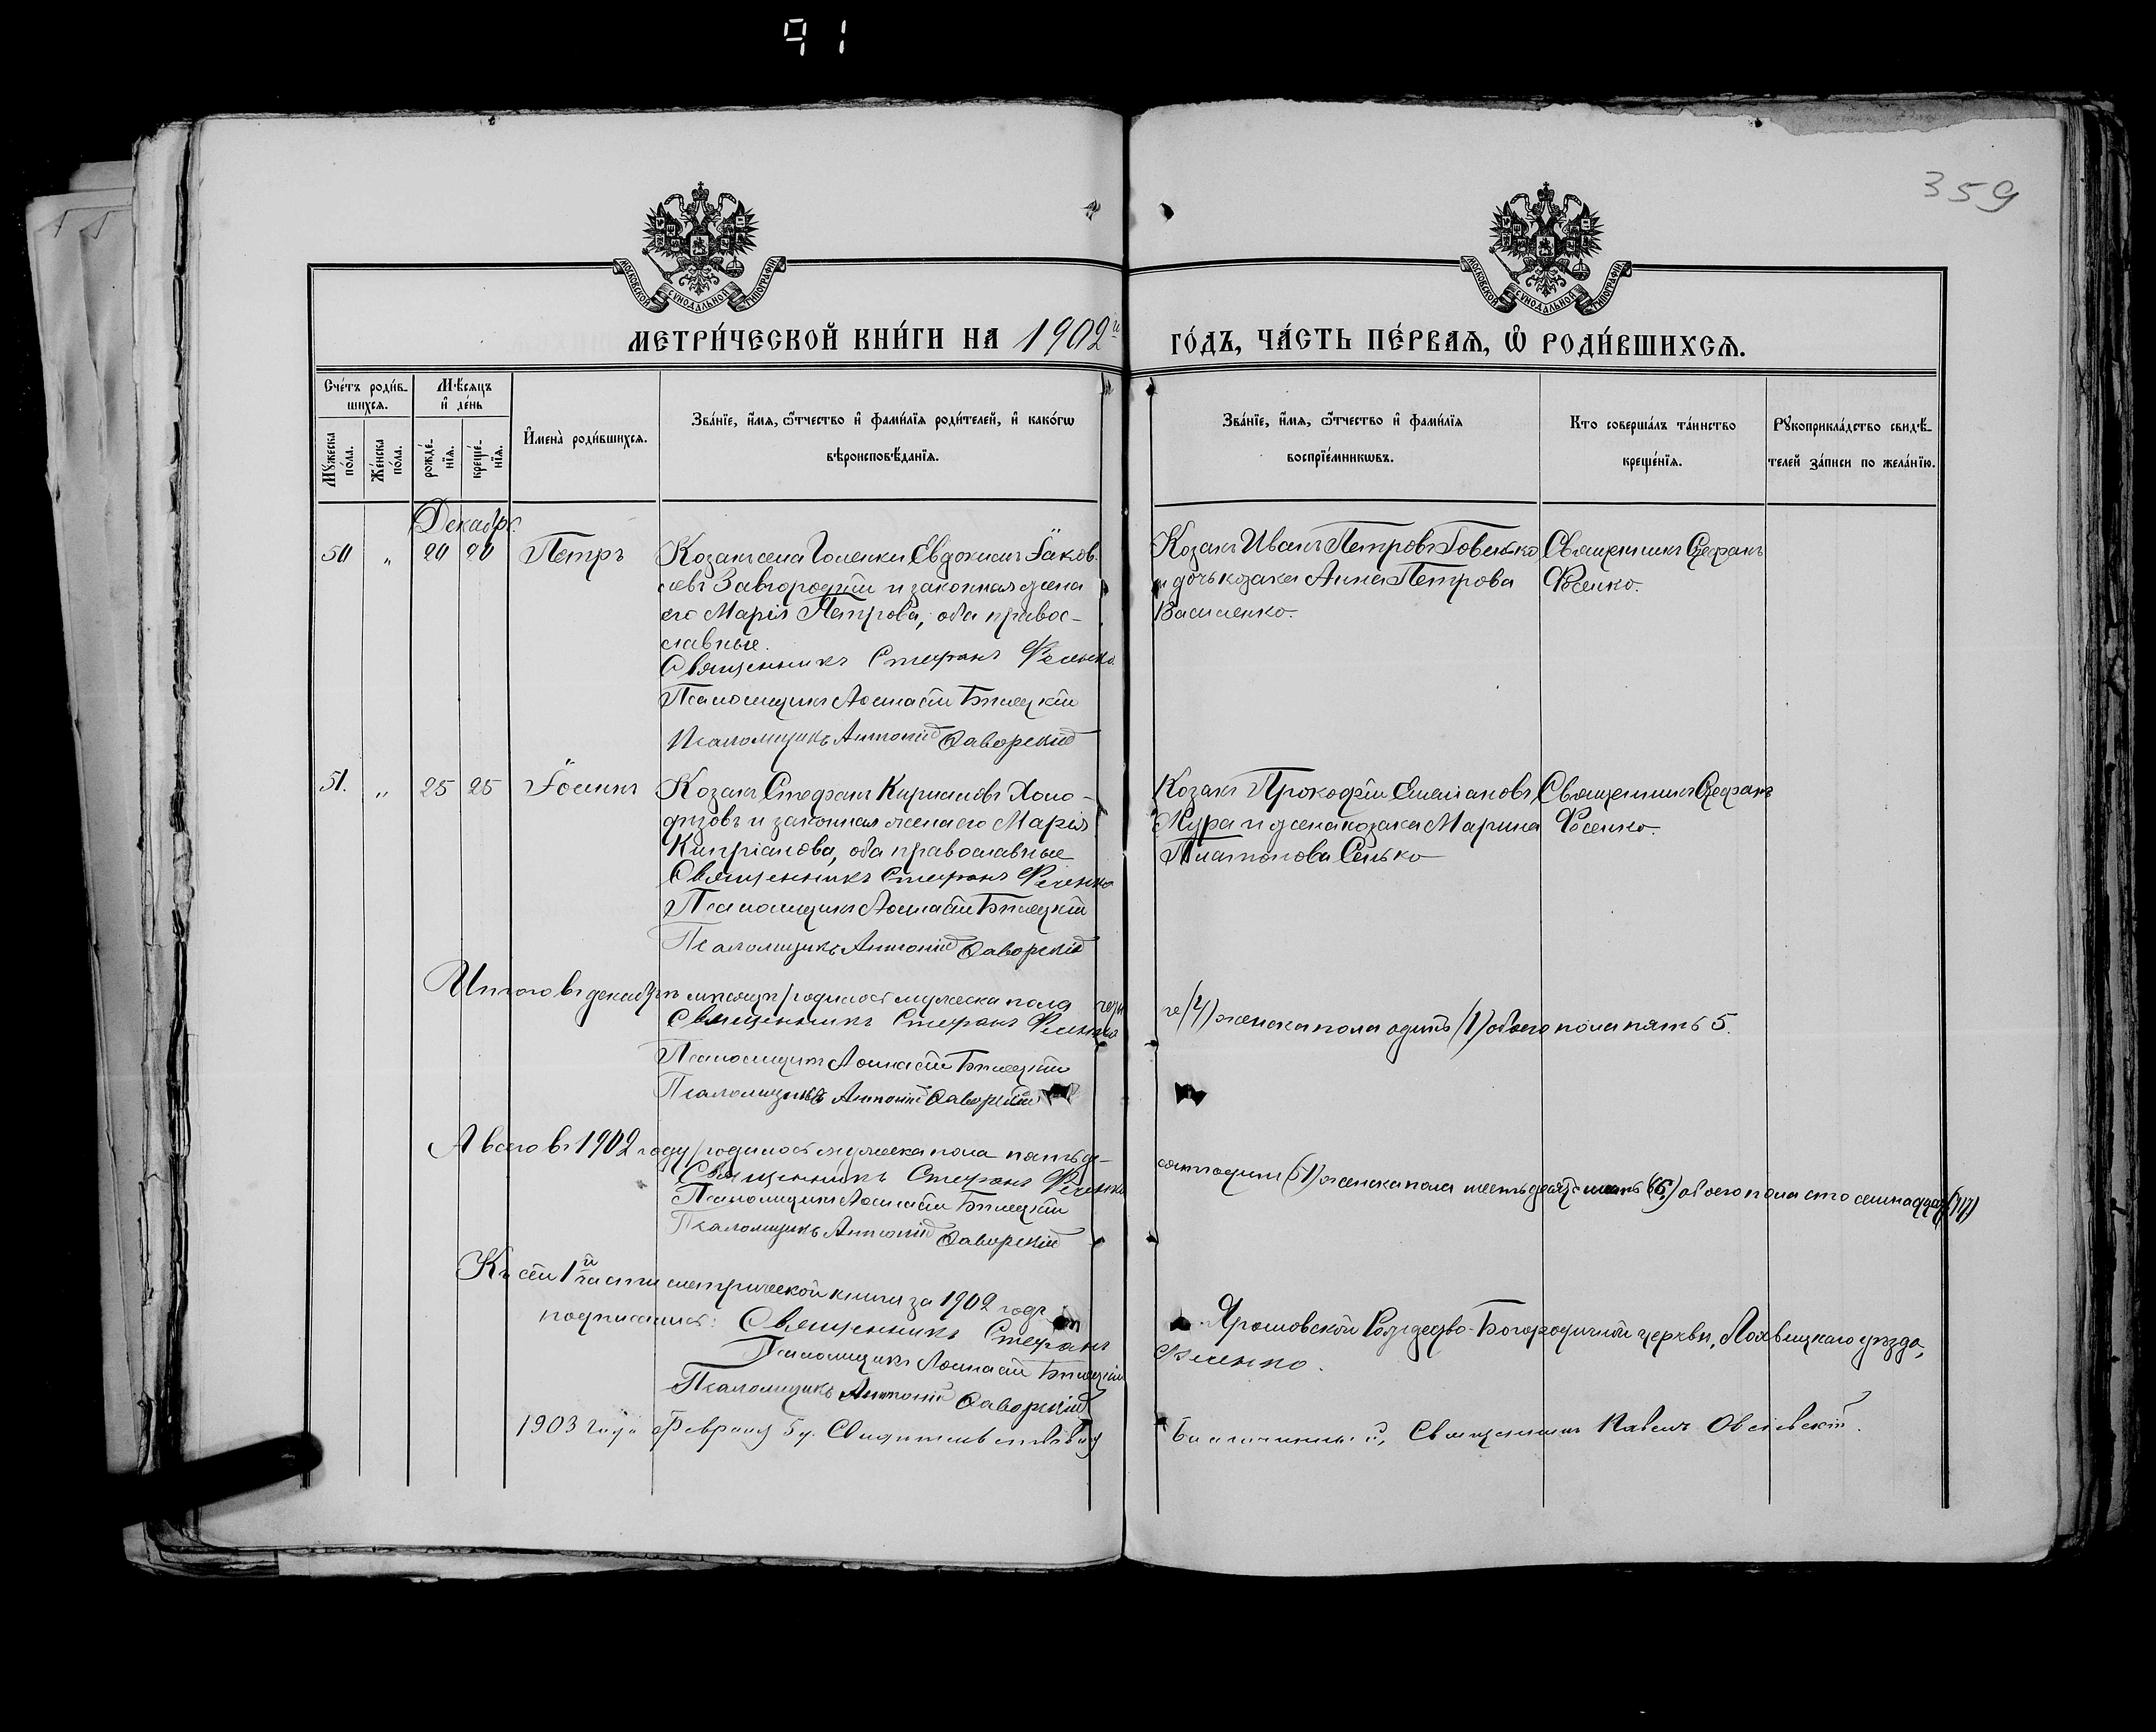 91
359
МОСКОВСКОЙ СѴНОДАЛЬНОЙ ТИПОГРАФІИ
МОСКОВСКОЙ СѴНОДАЛЬНОЙ ТИПОГРАФІИ
МЕТРИ́ЧЕСКОЙ КНИ́ГИ НА 1902й ГО́ДЪ, ЧА́СТЬ ПЕ́РВАѦ, Ѡ҆ РОДИ́ВШИХСѦ.
Сче́тъ роди́в-
шихсѧ.
Мѣ́сѧцъ
и҆ де́нь
Мꙋ́жеска по́ла.
Же́нска по́ла.
рожде́-
нїѧ.
креще́-
нїѧ.
И҆мена̀ роди́вшихсѧ.
Зва́нїе, и҆́мѧ, ѻ҆́тчество и҆ фами́лїѧ роди́телей, и҆ како́гѡ
вѣроисповѣ́данїѧ.
Зва́нїе, и҆́мѧ, ѻ҆́тчество и҆ фами́лїѧ
воспрїе́мникѡвъ.
Кто соверша́лъ та́инство
креще́нїѧ.
Рꙋкоприкла́дство свидѣ́-
телей за́писи по жела́нїю.
Декабрь.
50 " 20 20 Петръ
Козакъ села Голенки Евдокимъ Іаков-
левъ Завгородній и законная жена
его Марія Петрова, оба правос-
славные.
Священникъ Стефанъ Фесенко.
Псаломщикъ Аѳанасій Билецкій
Псаломщикъ Антоній Яворскій
Козакъ Иванъ Петровъ
и дочь козака Анна Петрова
Василенко.
Священникъ Стефанъ
Фесенко.
51. " 25 25 Іосифъ
Козакъ Стефанъ Кирилловъ Холо-
дизовъ и законная жена его Марія
Кипріанова, оба православные
Священникъ Стефанъ Фесенко
Псаломщикъ Аѳанасій Билецкій
Псаломщикъ Антоній Яворскій
Козакъ Прокофій
Жура и жена козака Марина
Платонова Сенько
Священникъ Стефанъ
Фесенко.
Итого въ декабрѣ мѣсяцѣ родилось мужеска пола четы
ре (4) женска пола одинъ (1) обоего пола пять 5.
Священникъ Стефанъ Фесенко
Псаломщикъ Аѳанасій Билецкій
Псаломщикъ Антоній Яворскій
А всего въ 1902 году родилось мужеска пола пятьде-
сятъ одинъ (51) женска пола шестьдесятъ шесть (66) обоего пола сто семнадцать (117)
Священникъ Стефанъ Фесенко
Псаломщикъ Аѳанасій Билецкій
Псаломщикъ Антоній Яворскій
Къ сей 1й части метрической книги за 1902 годъ
Ярошовской Рождество-Богородичной церкви, Лохвицкаго уѣзда,
подписались: Священникъ Стефанъ
Фесенко.
Псаломщикъ Аѳанасій Билецкій
Псаломщикъ Антоній Яворскій
1903 года Февраля 5 д. Свидѣтельствовалъ
Благочинный, Священникъ Павелъ